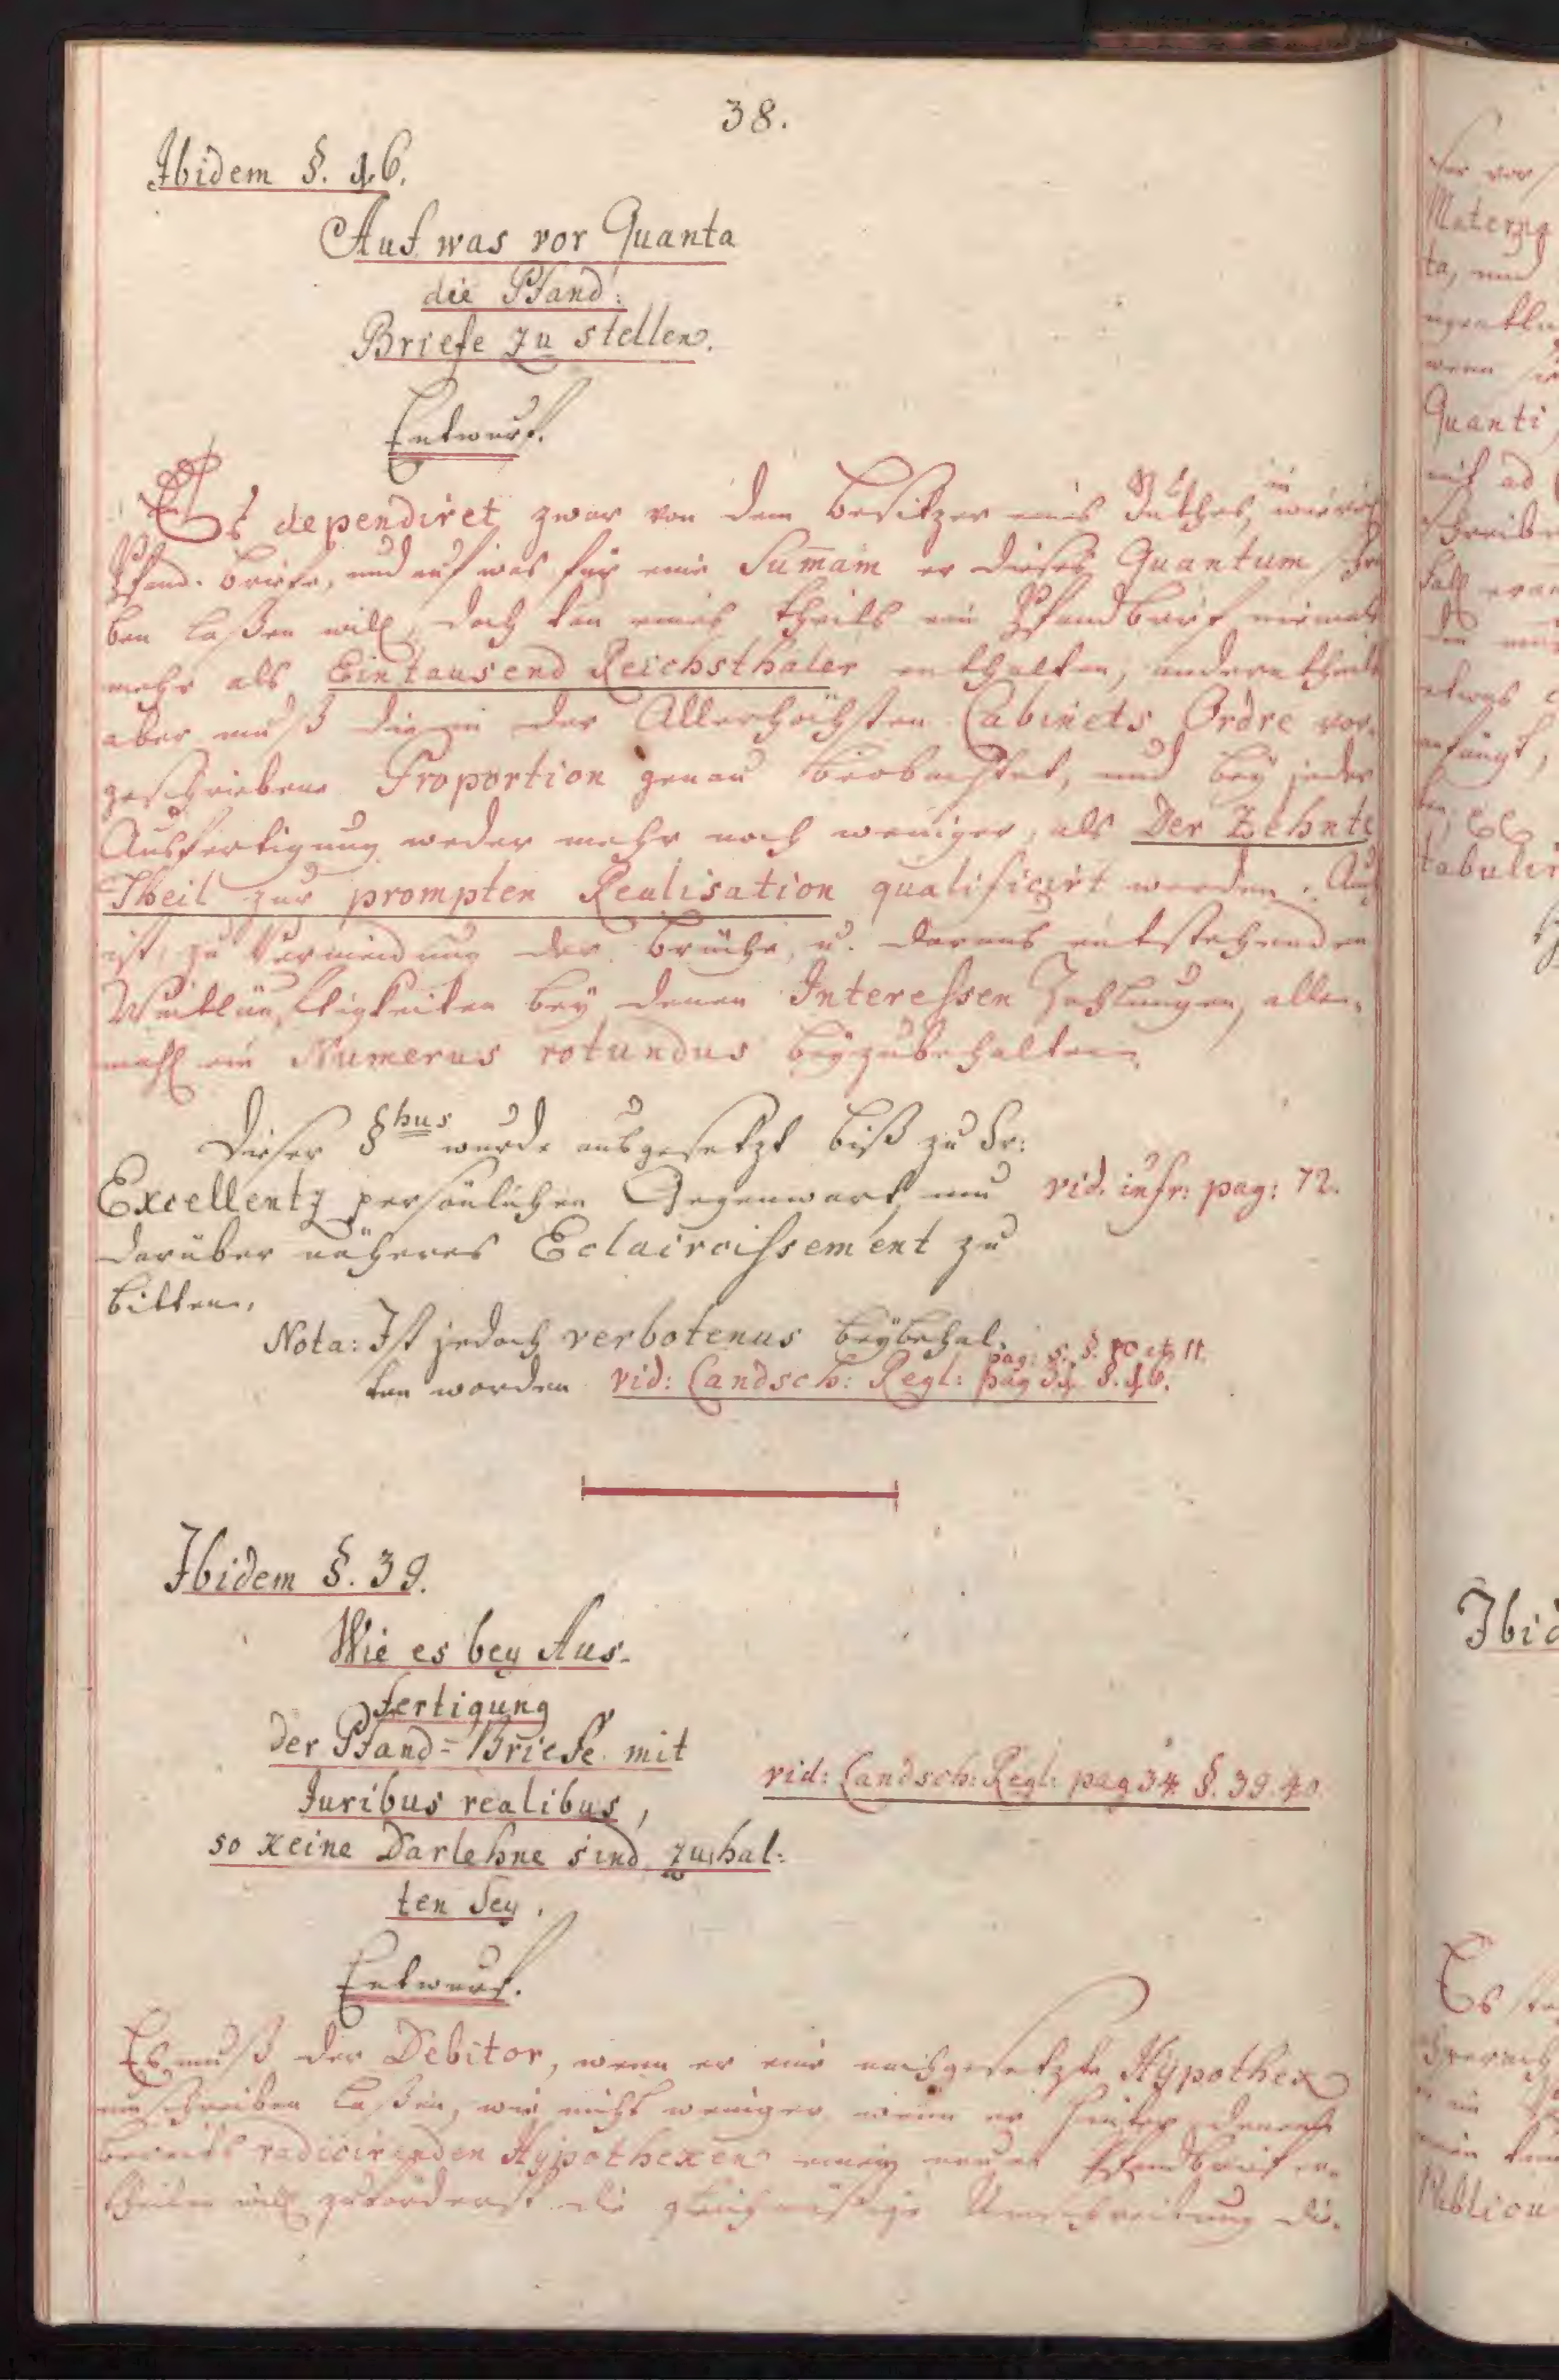 38.
Ibidem §. 46.
Auf was vor Quanta
die Pfand:
Briefe zu stellen.
Entwurf.
Es dependiret zwar von dem Besitzer eines Guthes, in
Pfand-Briefe, und auf was für eine Sum̅am er dieses Quantum
ben laßen will, doch kan eines theils ein Pfandbrief niemals
mehr als Eintausend Reichsthaler enthalten, andern theils
aber muß die in der Allerhöchsten Cabinets Ordre vor-
geschriebene Proportion genau beobachtet, und bey jeder
Ausfertigung weder mehr noch weniger, als Der Zehnte
Theil zur prompten Realisation qualificirt werden. Auch
ist, zu Vermeidung der Brüche, u. daraus entstehenden
Weitläuftigkeiten bey denen Interessen Zahlungen, alle-
mahl ein Numerus rotundus beyzubehalten.
Dieser §hus wurde ausgesetzt biß zu Sr:
Excellentz persönlichen Gegenwart, um vid. infr: pag: 72.
darüber näheres Eclaircissement zu
bitten.
Nota: Ist jedoch verbotenus beybehal-
pag: 5. §. 10 et 11.
ten worden vid: Landsch: Regl: pag §. 46.
Ibidem §. 39.
Wie es bey Aus-
fertigung
der Pfand-Briefe mit
Juribus realibus,
vid: Landsch: Regl: pag 34 §. 39. 40.
so keine Darlehne sind, zu hal-
ten sey.
Entwurf.
Es muß der Debitor, wenn er eine ausgesetzte Hypothek
umschreiben laßen, wie nicht weniger wenn er hinter denen
bereits radicirenden Hypotheken einen neuen Pfandbrief er-
theilen will zuförderst die gleichmäßige Umschreibung die-
Ibid